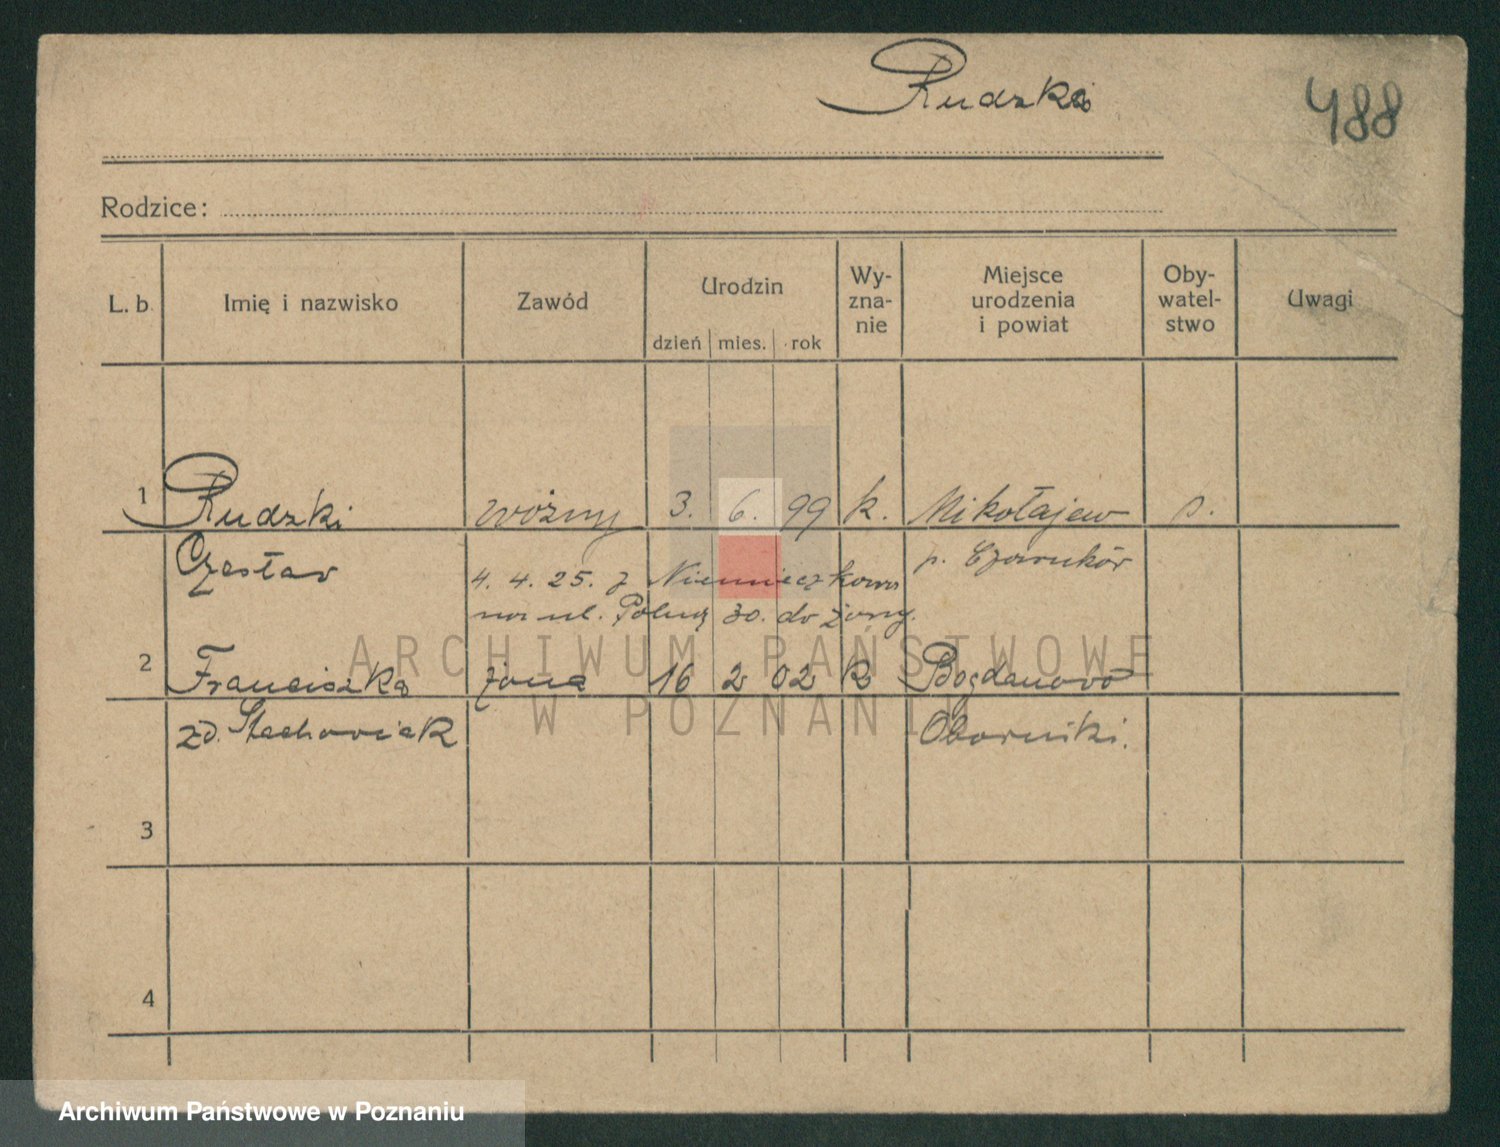 Rudzki
488
Rodzice:
L. b. Imię i nazwisko Zawód Urodzin dzień mies. rok Wy-zna-nie Miejsce urodzenia i powiat Oby-watel-stwo Uwagi
1 Rudzki woźny 3. 6. 99 k. Mikołajewo p.
Czesław p. Czarnków
4. 4. 25. z Niemieczkowa
na ul. 30. do żony.
ARCHIWUM PAŃSTWOWE
2 Franciszka żona 16 2 02 k Bogdanowo
W POZNANIU
zd. Stachowiak Oborniki.
3
4
Archiwum Państwowe w Poznaniu